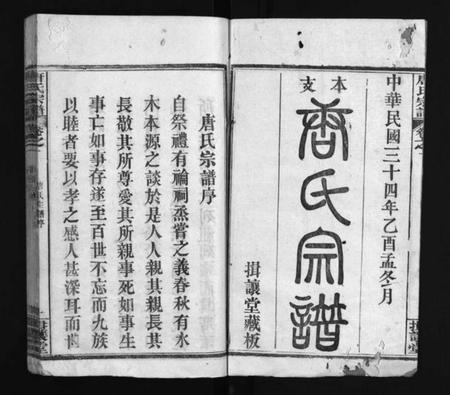 中華民國三十四年乙酉孟冬月
本支
唐氏宗譜
揖讓堂藏板
唐氏宗譜序
自祭禮有禴祠烝嘗之義春秋有水
木本源之談於是人人親其親長其
長敬其所尊愛其所親事死如事生
事亡如事存遂至百世不忘而九族
以睦者要以孝之感人甚深耳而世
唐氏宗譜
揖讓堂